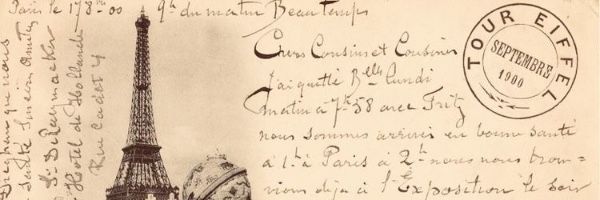 Paris le 17-8-00 9h du matin Beau temps
Chers Cousins et Cousines
J'ai quitté Blles lundi
matin à 7h58 avec Fritz
nous sommes arrivés en bonne santé
à 1h à Paris à 2 heures nous trou-
vions déjà à l'Exposition le soir
TOUR EIFFEL
SEPTEMBRE
1900
nous
santé
Hotel de Hollande
Rue Cadet 4